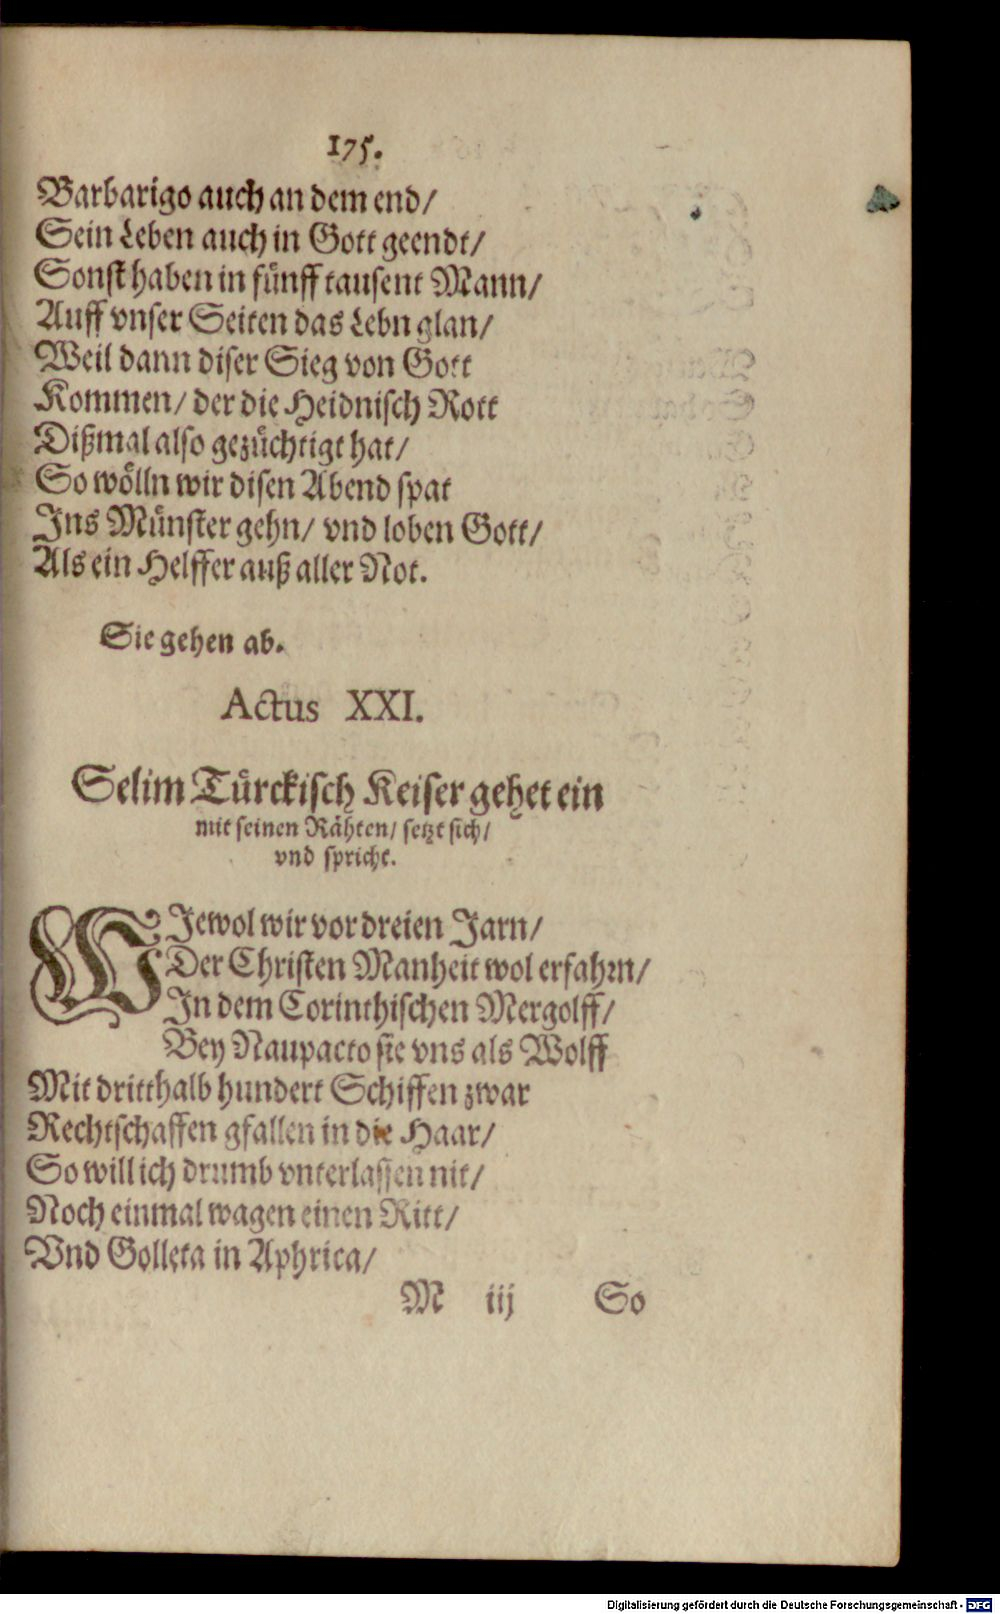 175.
Barbarigo auch an dem end/
Sein Leben auch in Gott geendt/
Sonst haben in fünff tausent Mann/
Auff vnser Seiten das Lebn glan/
Weil dann diser Sieg von Gott
Kommen/ der die Heidnisch Rott
Dißmal also gezüchtigt hat/
So wölln wir disen Abend spat
Ins Münster gehn/ vnd loben Gott/
Als ein Helffer auß aller Not.
Sie gehen ab.
Actus XXI.
Selim Türckisch Keiser gehet ein
mit seinen Rähten/ setzt sich/
vnd spricht.
WIewol wir vor dreien Jarn/
Der Christen Manheit wol erfahrn/
In dem Corinthischen Mergolff/
Bey Naupacto sie vns als Wolff
Mit dritthalb hundert Schiffen zwar
Rechtschaffen gfallen in die Haar/
So will ich drumb vnterlassen nit/
Noch einmal wagen einen Ritt/
Vnd Golleta in Aphrica/
M iij So
Digitalisierung gefördert durch die Deutsche Forschungsgemeinschaft - DFG